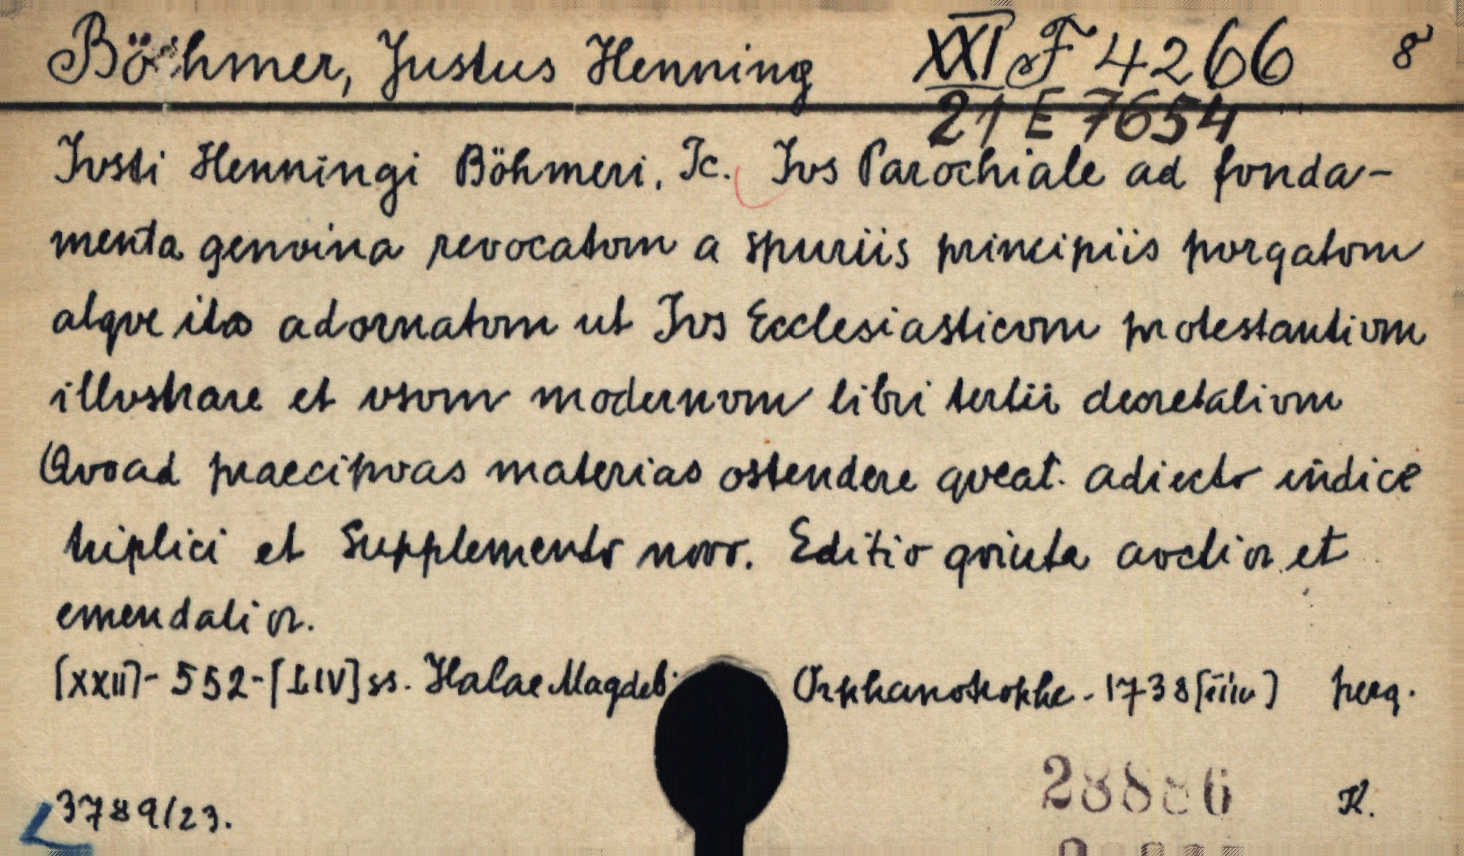 Böhmer, Justus Henning XXI F 4266 8
21 E 7654
Ivsti Henningi Böhmeri, Ic. Ivs Parochiale ad fvnda-
menta genvina revocatvm a spuriis principiis pvrgatvm
atqve ita adornatvm ut Ivs Ecclesiasticvm protestantivm
illvstrare et vsvm modernvm libri tertii decretalivm
Qvoad praecipvas materias ostendere qveat. adiecto indice
triplici et Supplemento novo. Editio qvinta avctior et
emendatior.
[XXII]- 552-[LIV] ss. Halae Magdeb. Orphanotrophe. 1738 perg.
3789/23. 28886 K.